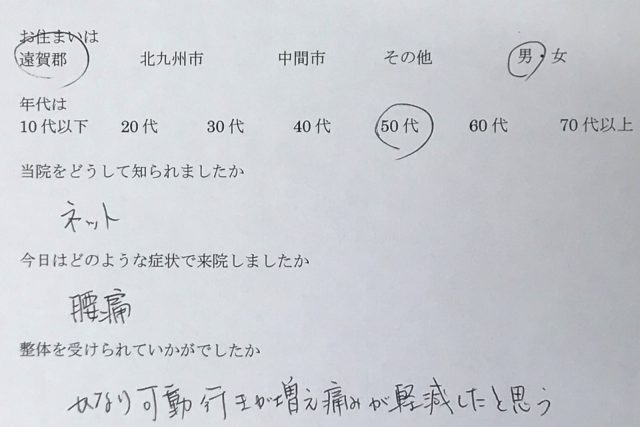 お住まいは
遠賀郡 北九州市 中間市 その他 男・女
年代は
10代以下 20代 30代 40代 50代 60代 70代以上
当院をどうして知られましたか
ネット
今日はどのような症状で来院しましたか
腰痛
整体を受けられていかがでしたか
かなり可動 が増え痛みが軽減したと思う